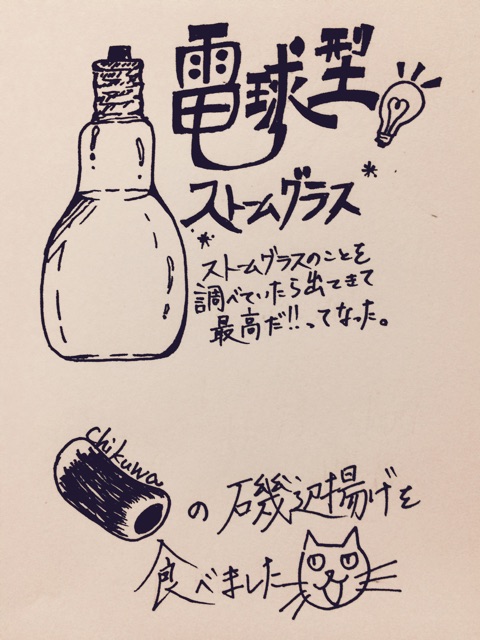 電球型
ストームグラス
ストームグラスのことを
調べていたら出てきて
最高だ!!ってなった。
Chikuwa
の磯辺揚げを
食べました